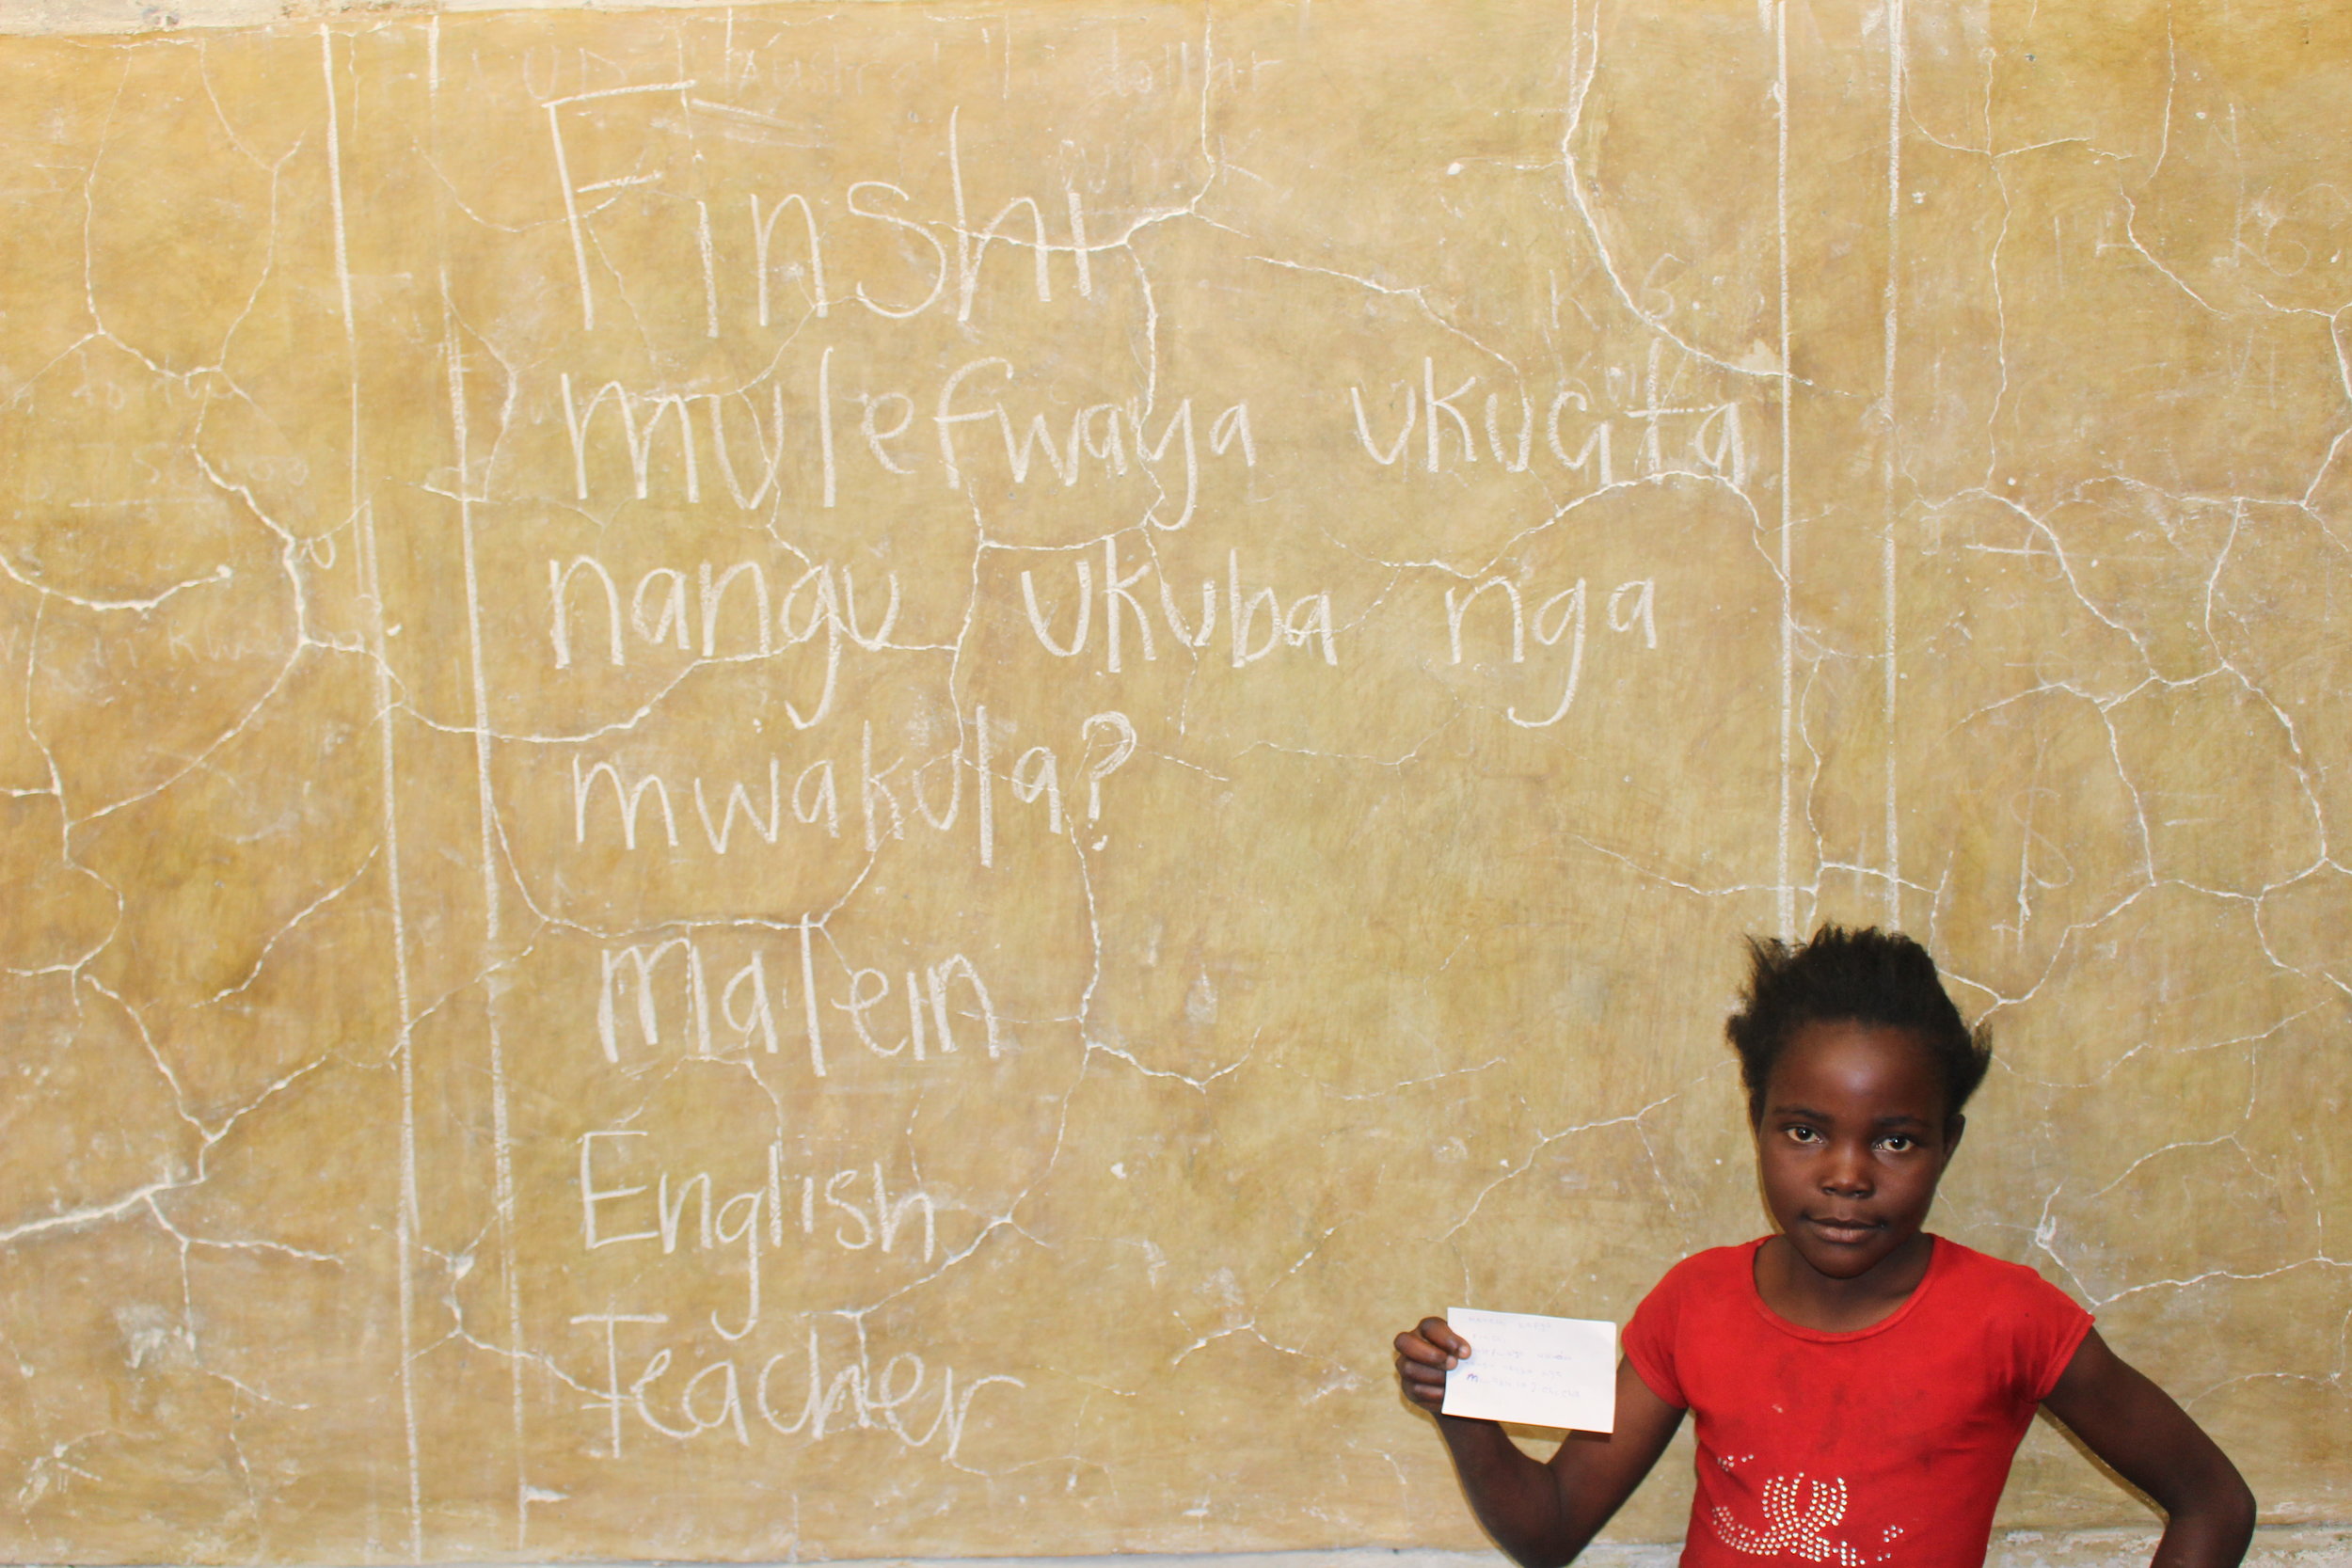 Finshi
mulefwaya ukucita
nangu ukuba nga
mwakula?
malein
English
Teacher